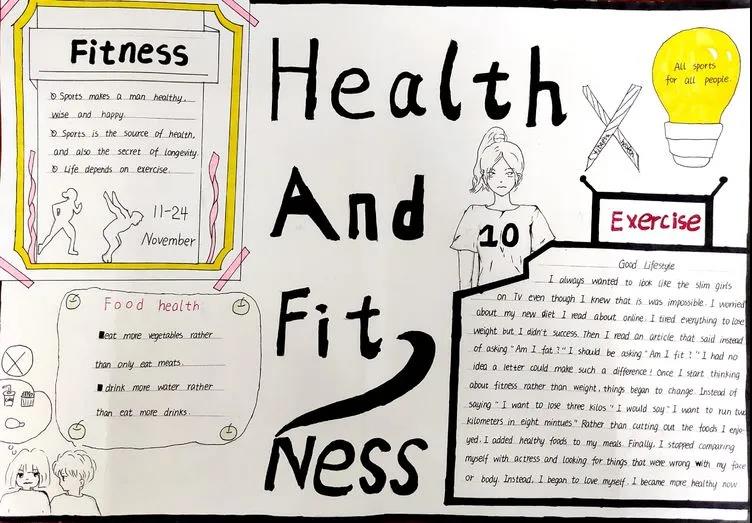 Fitness
Sports makes a man healthy,
wise and happy.
Sports is the source of health,
and also the secret of longevity.
Life depends on exercise.
11-24
November
Food health
eat more vegetables rather
than only eat meats.
drink more water rather
than eat more drinks.
Health
And
Fit
Ness
10
All sports
for all people.
Exercise
Good Lifestyle
I always wanted to look like the slim girls
on TV even though I knew that is was impossible. I worried
about my new diet I read about online. I tired everything to lose
weight but I didn't success. Then I read an article that said instead
of asking "Am I fat?" I should be asking "Am I fit?" I had no
idea a letter could make such a difference! Once I start thinking
about fitness rather than weight, things began to change. Instead of
saying "I want to lose three kilos" I would say "I want to run two
kilometers in eight mintues" Rather than cutting out the foods I enjo-
yed. I added healthy foods to my meals. Finally, I stopped comparing
myself with actress and looking for things that were wrong with my face
or body. Instead, I began to love myself. I became more healthy now